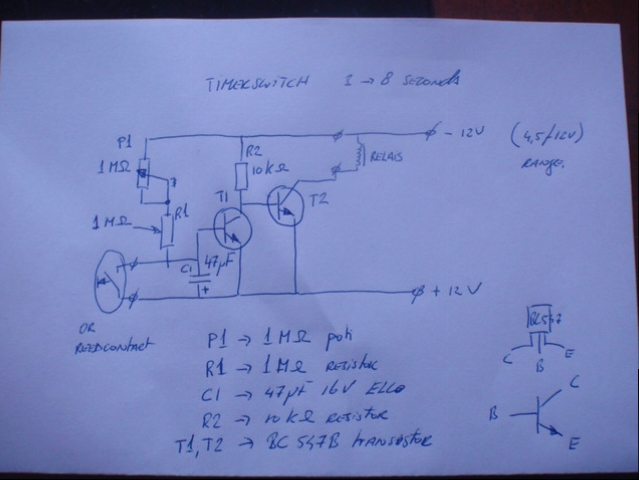 TIMERSWITCH 1 → 8 SECONDS
P1
1 MΩ
R2
10 kΩ
- 12V
(4,5/12V)
RANGE.
RELAIS
1 MΩ
R1
T1
T2
C1
47µF
+
+ 12V
OR
REEDCONTACT
P1 → 1 MΩ poti
R1 → 1 MΩ RESISTOR
C1 → 47µF 16V ELCO
R2 → 10 kΩ RESISTOR
T1, T2 → BC 547B TRANSISTOR
BC547
C
B
E
C
B
E